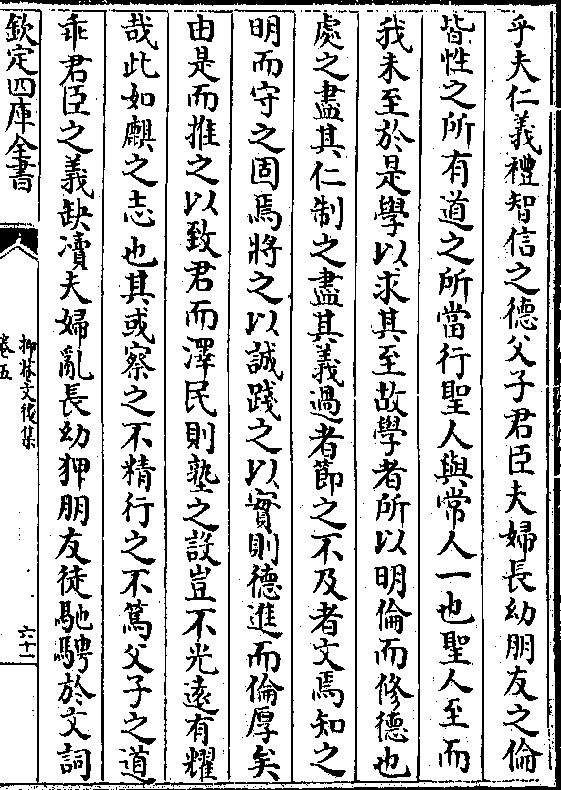 乎夫仁義禮智信之德父子君臣夫婦長幼朋友之倫
皆性之所有道之所當行聖人與常人一也聖人至而
我未至於是學以求其至故學者所以明倫而修德也
處之盡其仁制之盡其義過者節之不及者文焉知之
明而守之固焉將之以誠踐之以實則德進而倫厚矣
由是而推之以致君而澤民則塾之設豈不光遠有耀
哉此如麒之志也其或察之不精行之不篤父子之道
乖君臣之義缺凟夫婦亂長幼狎朋友徒馳騁於文詞
欽定四庫全書
抑菴文後集
卷五
六十一